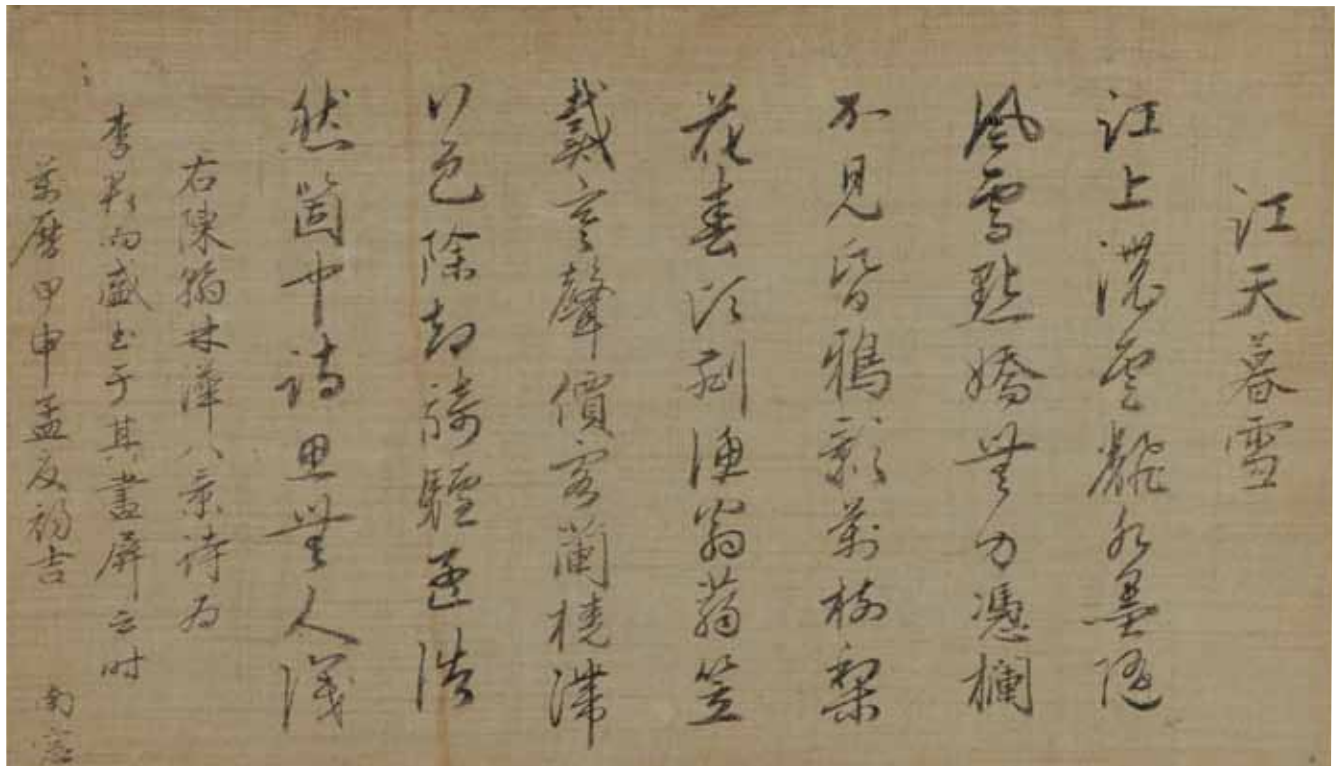 江天暮雪
江上濃雲飜水墨隨
風雪點嬌無力憑欄
不見昏鴉影萬樹梨
花春頃刻漁翁蒻笠
戴寒聲價客蘭橈滯
行色除却騎驢孟浩
然箇中詩思無人識
右陳翰林澕八景詩爲
李君而盛書于其畫屛云時
萬曆甲申孟夏初吉
南窓